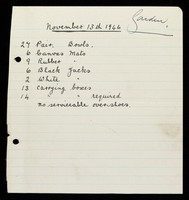 November 13th 1966
Garden.
27 Pair Bowls.
6 Canvas Mats
9 Rubber "
6 Black Jacks
2 White "
13 Carrying boxes
14 " " required
no serviceable over-shoes.